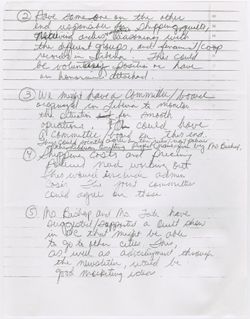 ② Have someone on the other
end responsible for shipping quilts,
receiving orders, liaisoning with
the different groups, and financial/coop
records in Liberia. This could
be volunteer position or have
an honorarium attached.
③ We might have a committee/board
overseas in Liberia to monitor
the situation for smooth
operations. You could have
a committee/board on this end.
④ Shipping costs and pricing
need working out
This would include admin
costs. The two committees
could agree on these
⑤ Mr. Bishop and Ms. have
suggested/supported a quilt show
in DC that might be able
to go to other cities. This,
as well as advertisement through
the newsletter, would be
good marketing ideas